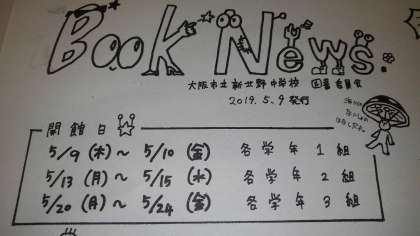 Book News.
大阪市立新北野中学校 図書委員会
2019.5.9発行
開館日
5/9(木)~5/10(金) 各学年1組
5/13(月)~5/15(水) 各学年2組
5/20(月)~5/24(金) 各学年3組